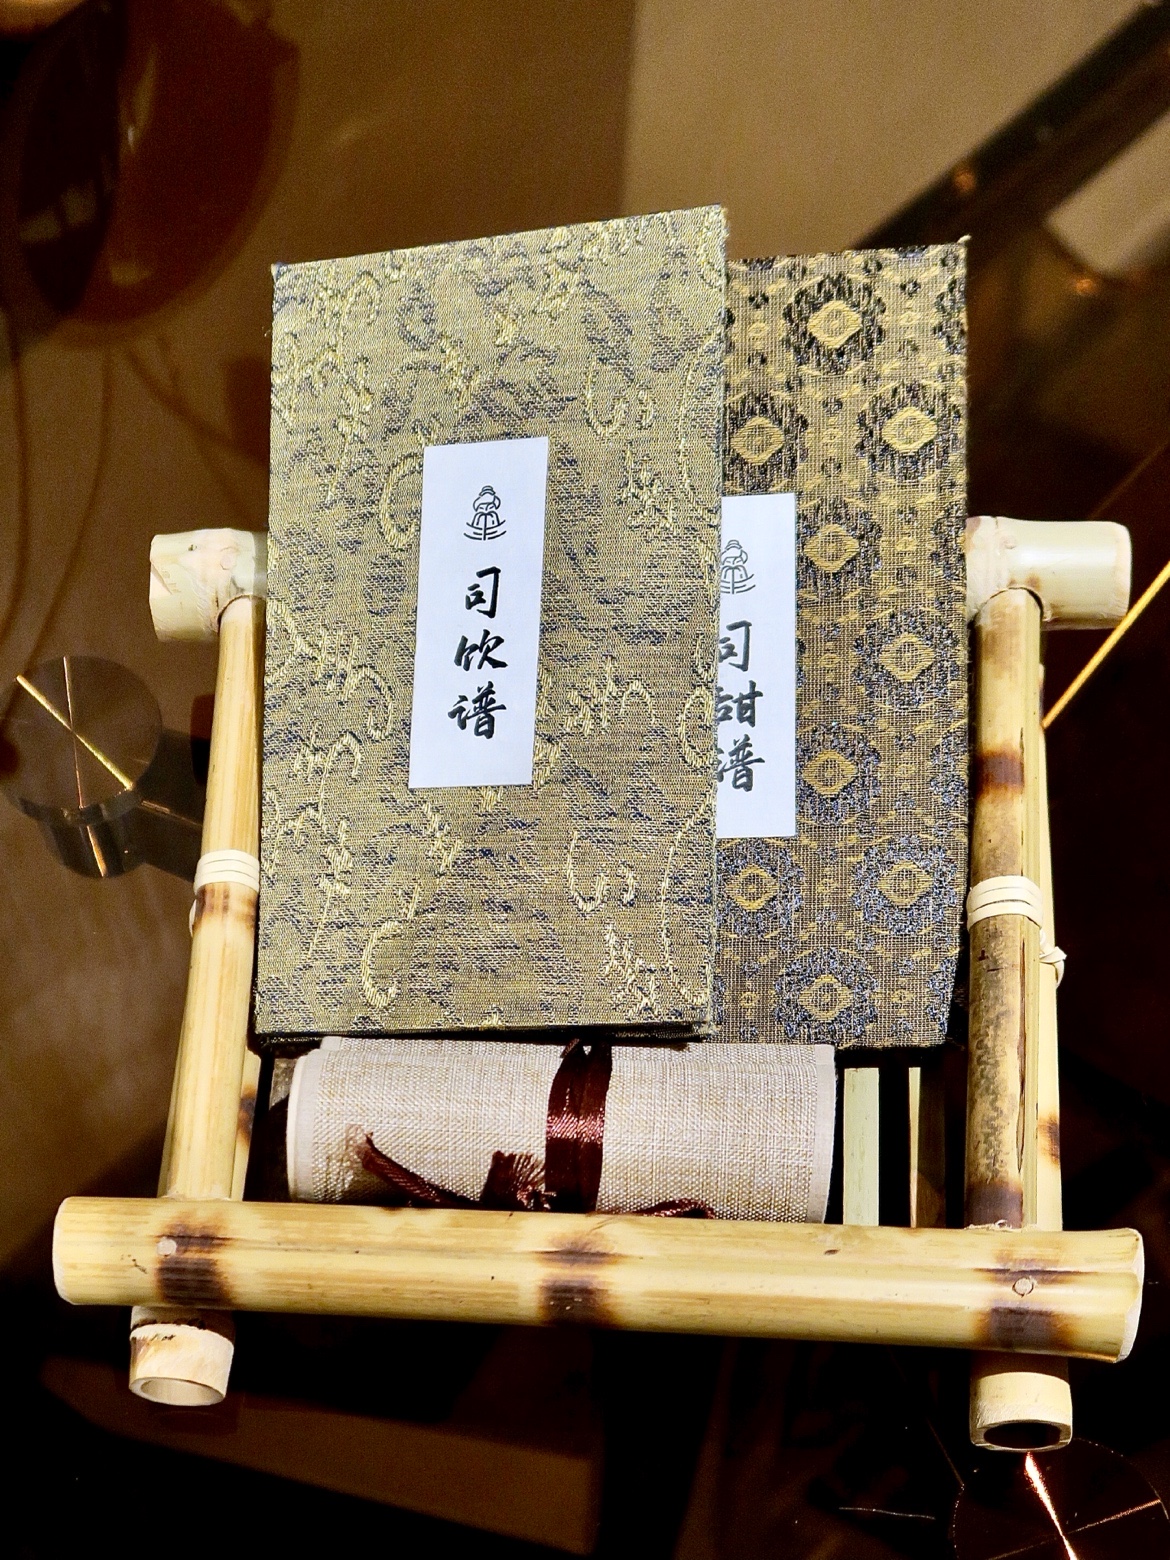 司饮谱
司甜谱